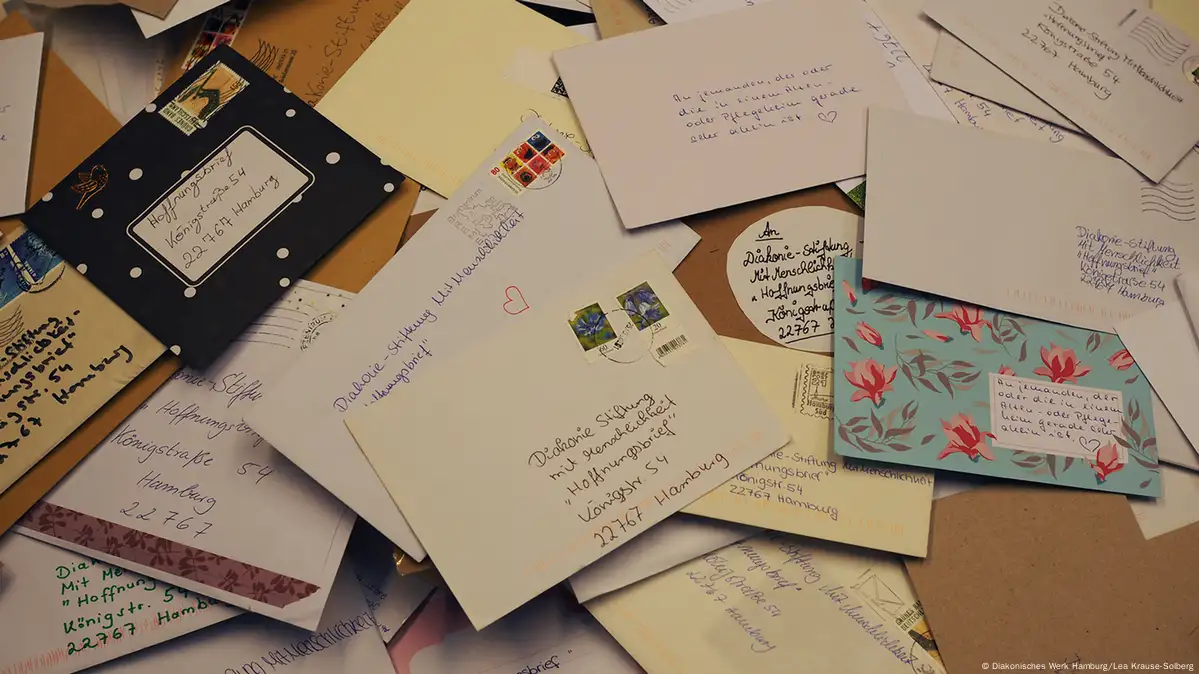 Hoffnungsbrief
Königstraße 54
22767 Hamburg
80
Diakonie-Stiftung Mit Menschlichkeit
"Hoffnungsbrief"
An jemanden, der oder
die in einem Alten-
oder Pflegeheim gerade
sehr allein ist ♡
Diakonie Stiftung Mit Menschlichkeit
"Hoffnungsbrief"
Königstraße 54
22767 Hamburg
An
Diakonie-Stiftung
Mit Menschlichk
"Hoffnungsbrie
Königstraß
22767
Diakonie-Stiftung
Mit Menschlichkeit
"Hoffnungsbrief"
Königstraße 54
22767 Hamburg
An jemanden, der
oder die in einem
Alten- oder Pflege-
heim gerade sehr
allein ist. ♡
Diakonie Stiftung
mit Menschlichkeit
"Hoffnungsbrief"
Königstr. 54
22767 Hamburg
Stiftung Mit Menschlichkeit
Hoffnungsbrief
Königstr. 54
22767 Hamburg
Stiftung
"Hoffnungsbrief"
str. 54
Hamburg
Hoffnungsbrief
Königstraße 54
Hamburg
22767
Dia
Mit Me
"Hoffnung
Königstr. 54
22767 Hamburg
Stiftung Mit Menschlichkeit
straße 54
22767 Hamburg
Mit Menschlichkeit
© Diakonisches Werk Hamburg/Lea Krause-Solberg